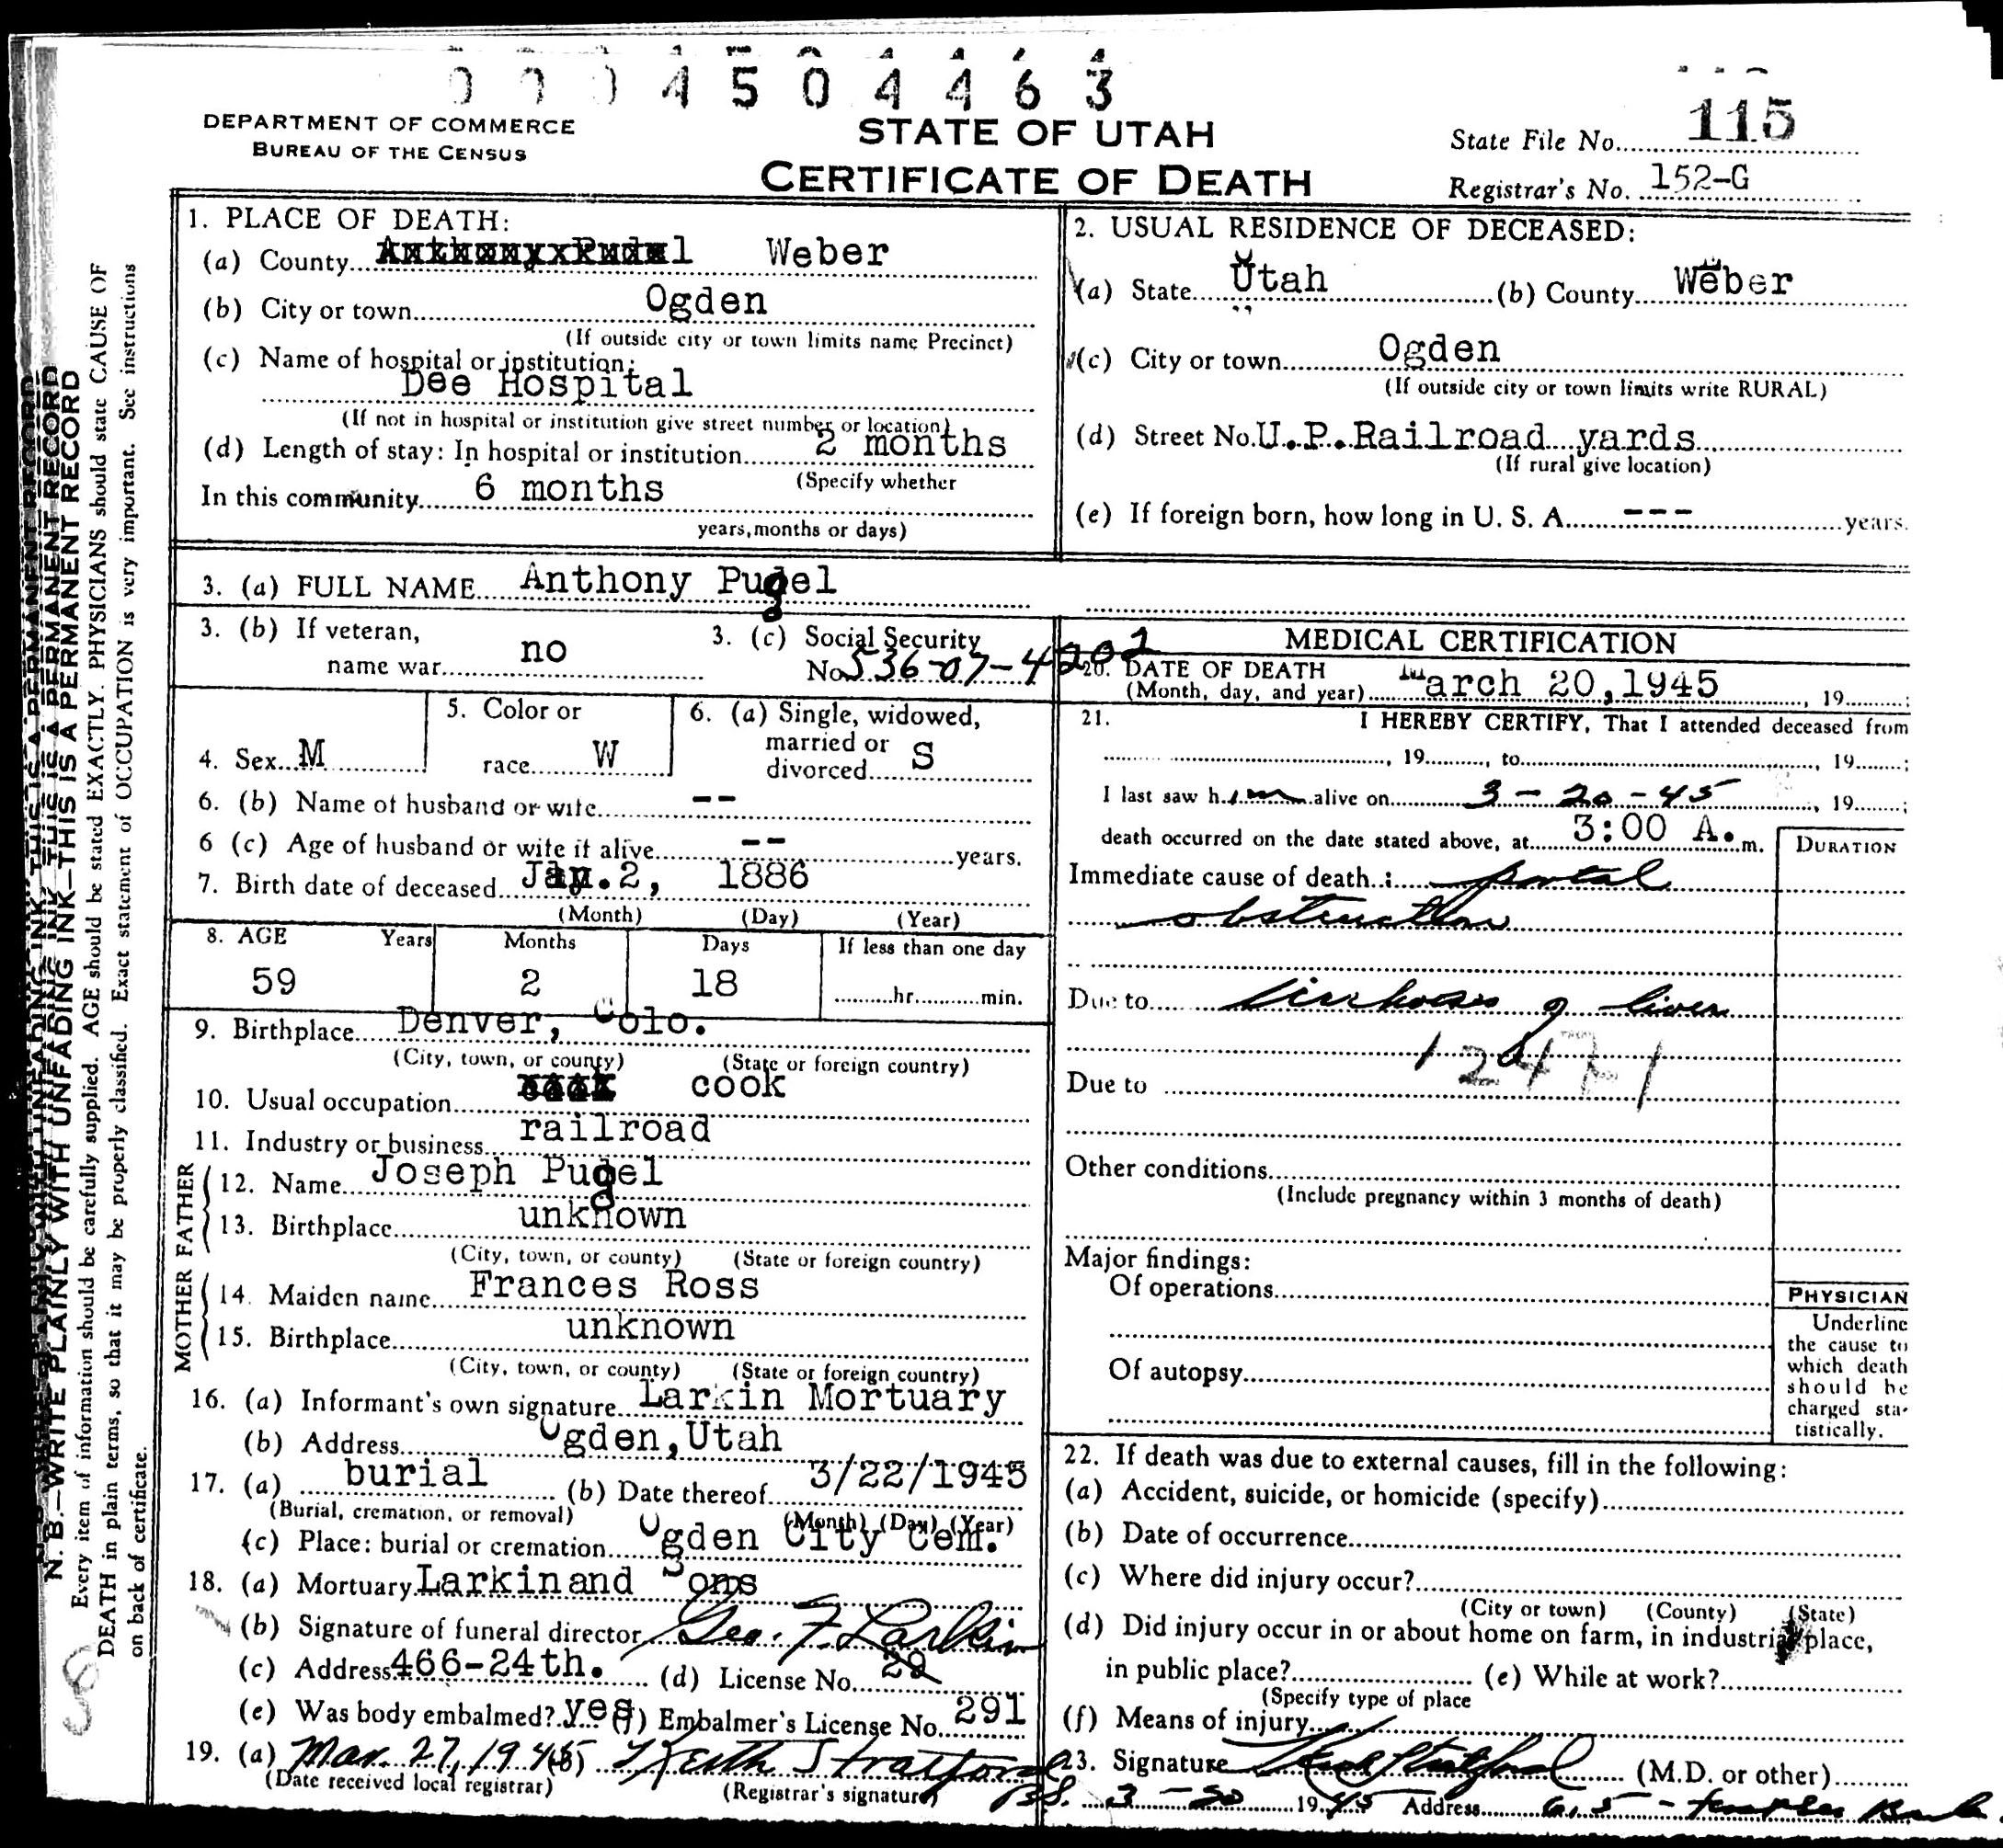 0004504463
DEPARTMENT OF COMMERCE
BUREAU OF THE CENSUS
STATE OF UTAH
CERTIFICATE OF DEATH
State File No. 115
Registrar's No. 152-G
1. PLACE OF DEATH:
(a) County Weber
(b) City or town Ogden
(If outside city or town limits name Precinct)
(c) Name of hospital or institution:
Dee Hospital
(If not in hospital or institution give street number or location)
(d) Length of stay: In hospital or institution 2 months
(Specify whether
In this community 6 months
years, months or days)
2. USUAL RESIDENCE OF DECEASED:
(a) State Utah (b) County Weber
(c) City or town Ogden
(If outside city or town limits write RURAL)
(d) Street No. U.P. Railroad yards
(If rural give location)
(e) If foreign born, how long in U. S. A. --- years.
3. (a) FULL NAME Anthony Pugel
3. (b) If veteran,
name war no
3. (c) Social Security
No. 536-07-4202
4. Sex M
5. Color or
race W
6. (a) Single, widowed,
married or
divorced S
6. (b) Name of husband or wife --
6 (c) Age of husband or wife if alive -- years.
7. Birth date of deceased Jan. 2, 1886
(Month) (Day) (Year)
8. AGE Years Months Days If less than one day
59 2 18 hr. min.
9. Birthplace Denver, Colo.
(City, town, or county) (State or foreign country)
10. Usual occupation cook
11. Industry or business railroad
FATHER
12. Name Joseph Pugel
13. Birthplace unknown
(City, town, or county) (State or foreign country)
MOTHER
14. Maiden name Frances Ross
15. Birthplace unknown
(City, town, or county) (State or foreign country)
16. (a) Informant's own signature Larkin Mortuary
(b) Address Ogden, Utah
17. (a) burial (b) Date thereof 3/22/1945
(Burial, cremation, or removal) (Month) (Day) (Year)
(c) Place: burial or cremation Ogden City Cem.
18. (a) Mortuary Larkin and Sons
(b) Signature of funeral director Geo. F. Larkin
(c) Address 466-24th. (d) License No. 29
(e) Was body embalmed? yes (f) Embalmer's License No. 291
19. (a) Mar. 27, 1945 (b) Keith Stratford
(Date received local registrar) (Registrar's signature)
MEDICAL CERTIFICATION
20. DATE OF DEATH
(Month, day, and year) March 20, 1945 19
21. I HEREBY CERTIFY, That I attended deceased from
, 19 , to , 19 ;
I last saw him alive on 3-20-45 , 19 ;
death occurred on the date stated above, at 3:00 A. m.
DURATION
Immediate cause of death: portal
obstruction
Due to Cirrhosis of liver
Due to
Other conditions
(Include pregnancy within 3 months of death)
Major findings:
Of operations
Of autopsy
PHYSICIAN
Underline
the cause to
which death
should be
charged sta-
tistically.
22. If death was due to external causes, fill in the following:
(a) Accident, suicide, or homicide (specify)
(b) Date of occurrence
(c) Where did injury occur?
(City or town) (County) (State)
(d) Did injury occur in or about home on farm, in industrial place,
in public place? (e) While at work?
(Specify type of place
(f) Means of injury
23. Signature (M.D. or other)
3-20 1945 Address
N. B.—WRITE PLAINLY WITH UNFADING INK—THIS IS A PERMANENT RECORD
Every item of information should be carefully supplied. AGE should be stated EXACTLY. PHYSICIANS should state CAUSE OF
DEATH in plain terms, so that it may be properly classified. Exact statement of OCCUPATION is very important. See instructions
on back of certificate.